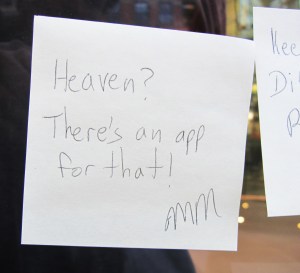 Heaven?
There's an app
for that!
AMM
Kee
Di